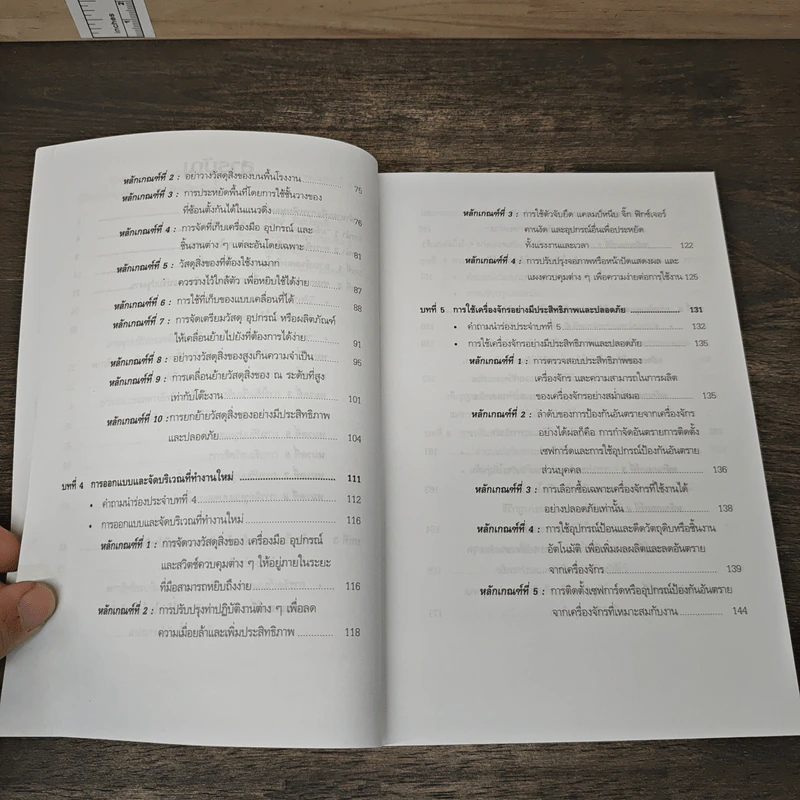 inches
1
2
หลักเกณฑ์ที่ 2 : อย่าวางวัสดุสิ่งของบนพื้นโรงงาน.................. 75
หลักเกณฑ์ที่ 3 : การประหยัดพื้นที่โดยการใช้ชั้นวางของ
ที่ซ้อนตั้งกันได้ในแนวดิ่ง.................. 76
หลักเกณฑ์ที่ 4 : การจัดที่เก็บเครื่องมือ อุปกรณ์ และ
ชิ้นงานต่าง ๆ แต่ละอันโดยเฉพาะ.................. 81
หลักเกณฑ์ที่ 5 : วัสดุสิ่งของที่ต้องใช้งานมาก
ควรวางไว้ใกล้ตัว เพื่อหยิบใช้ได้ง่าย.................. 87
หลักเกณฑ์ที่ 6 : การใช้ที่เก็บของแบบเคลื่อนที่ได้.................. 88
หลักเกณฑ์ที่ 7 : การจัดเตรียมวัสดุ อุปกรณ์ หรือผลิตภัณฑ์
ให้เคลื่อนย้ายไปยังที่ต้องการได้ง่าย.................. 91
หลักเกณฑ์ที่ 8 : อย่าวางวัสดุสิ่งของสูงเกินความจำเป็น.................. 95
หลักเกณฑ์ที่ 9 : การเคลื่อนย้ายวัสดุสิ่งของ ณ ระดับที่สูง
เท่ากับโต๊ะงาน.................. 101
หลักเกณฑ์ที่ 10 : การยกย้ายวัสดุสิ่งของอย่างมีประสิทธิภาพ
และปลอดภัย.................. 104
บทที่ 4 การออกแบบและจัดบริเวณที่ทำงานใหม่ .................. 111
• คำถามนำร่องประจำบทที่ 4.................. 112
• การออกแบบและจัดบริเวณที่ทำงานใหม่.................. 116
หลักเกณฑ์ที่ 1 : การจัดวางวัสดุสิ่งของ เครื่องมือ อุปกรณ์
และสวิตช์ควบคุมต่าง ๆ ให้อยู่ภายในระยะ
ที่มือสามารถหยิบถึงง่าย.................. 116
หลักเกณฑ์ที่ 2 : การปรับปรุงท่าปฏิบัติงานต่าง ๆ เพื่อลด
ความเมื่อยล้าและเพิ่มประสิทธิภาพ ............ 118
หลักเกณฑ์ที่ 3 : การใช้ตัวจับยึด แคลมป์หนีบ จิ๊ก ฟิกซ์เจอร์
คานงัด และอุปกรณ์อื่นเพื่อประหยัด
ทั้งแรงงานและเวลา .................. 122
หลักเกณฑ์ที่ 4 : การปรับปรุงจอภาพหรือหน้าปัดแสดงผล และ
แผงควบคุมต่าง ๆ เพื่อความง่ายต่อการใช้งาน 125
บทที่ 5 การใช้เครื่องจักรอย่างมีประสิทธิภาพและปลอดภัย .................. 131
• คำถามนำร่องประจำบทที่ 5.................. 132
• การใช้เครื่องจักรอย่างมีประสิทธิภาพและปลอดภัย .................. 135
หลักเกณฑ์ที่ 1 : การตรวจสอบประสิทธิภาพของ
เครื่องจักร และความสามารถในการผลิต
ของเครื่องจักรอย่างสม่ำเสมอ .................. 135
หลักเกณฑ์ที่ 2 : ลำดับของการป้องกันอันตรายจากเครื่องจักร
อย่างได้ผลก็คือ การกำจัดอันตรายการติดตั้ง
เซฟการ์ดและการใช้อุปกรณ์ป้องกันอันตราย
ส่วนบุคคล .................. 136
หลักเกณฑ์ที่ 3 : การเลือกซื้อเฉพาะเครื่องจักรที่ใช้งานได้
อย่างปลอดภัยเท่านั้น .................. 138
หลักเกณฑ์ที่ 4 : การใช้อุปกรณ์ป้อนและดีดวัตถุดิบหรือชิ้นงาน
อัตโนมัติ เพื่อเพิ่มผลผลิตและลดอันตราย
จากเครื่องจักร .................. 139
หลักเกณฑ์ที่ 5 : การติดตั้งเซฟการ์ดหรืออุปกรณ์ป้องกันอันตราย
จากเครื่องจักรที่เหมาะสมกับงาน .................. 144